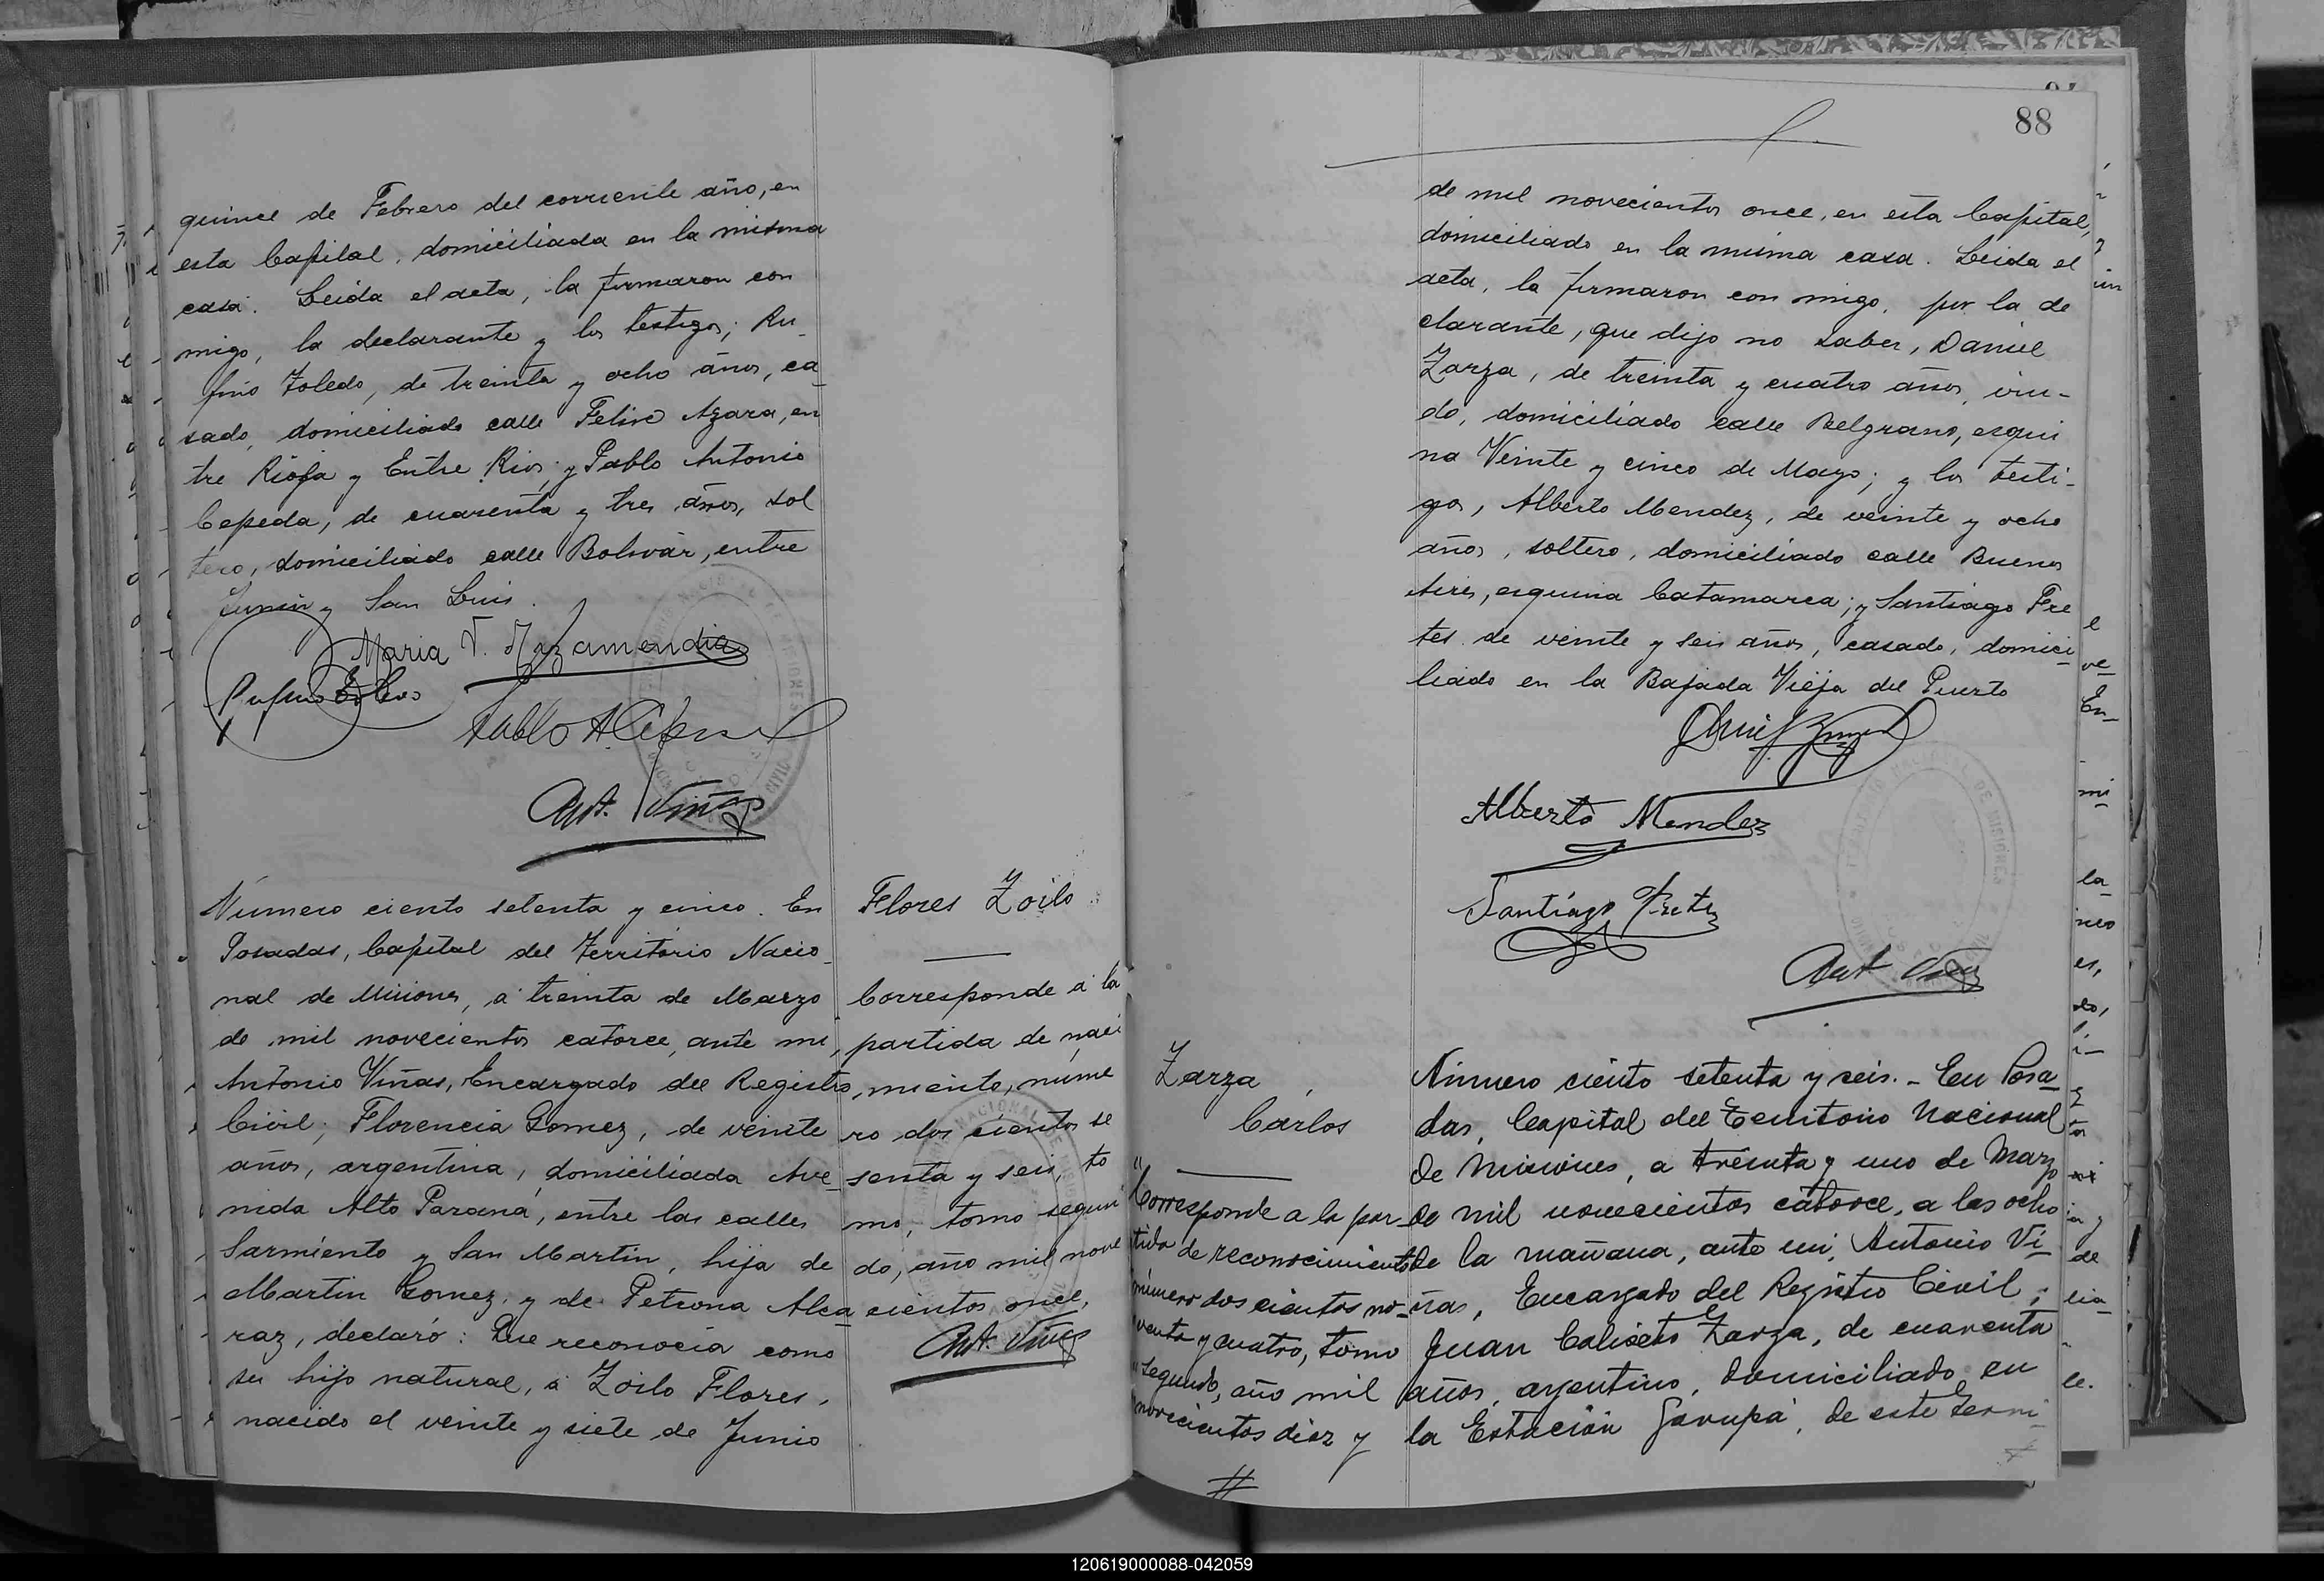 quince de Febrero del corriente año, en
esta Capital, domiciliada en la misma
casa. Leida el acta, la firmaron con
migo, la declarante y los testigos; Ru_
fino Toledo, de treinta y ocho años, ca_
sado, domiciliado calle Felix Azara, en
tre Rioja y Entre Rios; y Pablo Antonio
Cepeda, de cuarenta y tres años, sol
tero, domiciliado calle Bolivar, entre
Junin y San Luis.
Maria
Pablo A
Ant. Viñas
Número ciento setenta y cinco. En
Posadas, Capital del Territorio Nacio_
nal de Misiones, á treinta de Marzo
de mil novecientos catorce, ante mi,
Antonio Viñas, Encargado del Registro
Civil; Florencia Gomez, de veinte
años, argentina, domiciliada Ave_
nida Alto Paraná, entre las calles
Sarmiento y San Martin, hija de
Martin Gomez y de Petrona Alca_
raz, declaró: Que reconocia como
su hijo natural, á Zoilo Flores,
nacido el veinte y siete de Junio
Flores Zoilo
Corresponde á la
partida de naci
miento, núme
ro dos cientos se
senta y seis, to
mo, tomo segun
do, año mil nove
cientos once.
Ant. Viñas
88
de mil novecientos once, en esta Capital,
domiciliado en la misma casa. Leida el
acta, la firmaron con migo, por la de
clarante, que dijo no saber, Daniel
Zarza, de treinta y cuatro años, viu-
do, domiciliado calle Belgrano, esqui
na Veinte y cinco de Mayo; y los testi-
gos, Alberto Mendez, de veinte y ocho
años, soltero, domiciliado calle Buenos
Aires, esquina Catamarca; y Santiago Fre
tes de veinte y seis años, casado, domici_
liado en la Bajada Vieja del Puerto
Alberto Mendez
Santiago Fretes
Ant Viñas
Zarza
Cárlos
Corresponde a la par_
tida de reconocimiento
número dos cientos no_
venta y cuatro, tomo
segundo, año mil
novecientos diez y
#
Número ciento setenta y seis. - En Posa_
das, Capital del Territorio Nacional
de Misiones, a treinta y uno de Marzo
de mil novecientos catorce, a las ocho
de la mañana, ante mi, Antonio Vi_
ñas, Encargado del Registro Civil;
Juan Calisto Zarza, de cuarenta
años, argentino, domiciliado en
la Estación Garupá, de este Terri_
120619000088-042059